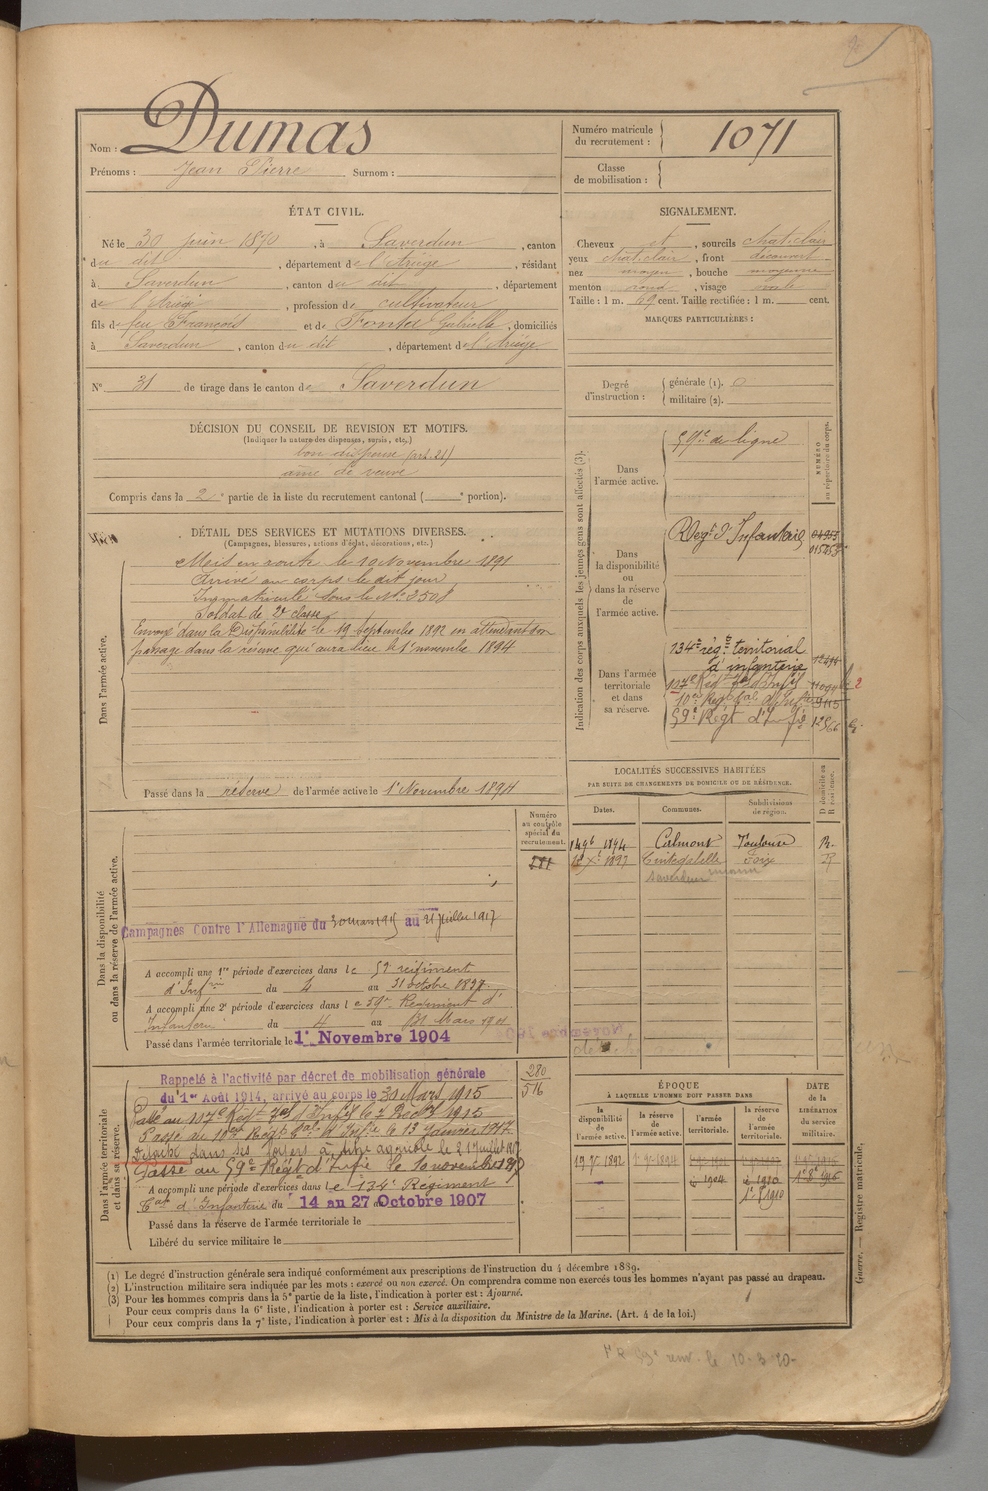 Nom : Dumas
Prénoms : Jean Pierre Surnom :
Numéro matricule du recrutement : 1071
Classe de mobilisation :
ÉTAT CIVIL.
Né le 30 juin 1870, à Saverdun, canton
du dit, département de l'Ariège, résidant
à Saverdun, canton du dit, département
de l'Ariège, profession de cultivateur
fils de feu François et de Gabrielle, domiciliés
à Saverdun, canton du dit, département de l'Ariège.
N° 31 de tirage dans le canton de Saverdun
DÉCISION DU CONSEIL DE REVISION ET MOTIFS.
(Indiquer la nature des dispenses, sursis, etc.)
bon dispensé (art. 21)
ainé de veuve
Compris dans la 2e partie de la liste du recrutement cantonal ( e portion).
SIGNALEMENT.
Cheveux et, sourcils chat. clair
yeux chat. clair, front découvert
nez moyen, bouche moyenne
menton rond, visage ovale
Taille : 1 m. 69 cent. Taille rectifiée : 1 m. cent.
MARQUES PARTICULIÈRES :
Degré d'instruction :
générale (1). 0
militaire (2).
DÉTAIL DES SERVICES ET MUTATIONS DIVERSES.
(Campagnes, blessures, actions d'éclat, décorations, etc.)
Dans l'armée active.
Mis en route le 10 Novembre 1891
Arrivé au corps le dit jour
Immatriculé sous le N° 3508
Soldat de 2e classe
Envoyé dans la Disponibilité le 19 Septembre 1892 en attendant son
passage dans la réserve qui aura lieu le 1r novembre 1894
Passé dans la réserve de l'armée active le 1r Novembre 1894
Indication des corps auxquels les jeunes gens sont affectés (3).
NUMÉRO au répertoire du corps.
Dans l'armée active.
59e de ligne
Dans la disponibilité ou dans la réserve de l'armée active.
Régt d'Infanterie
Dans l'armée territoriale et dans sa réserve.
134e rég. territorial
d'infanterie
117e Régt Tal d'Infie
10e Régt Tal d'Infie
59e Régt d'Infie
LOCALITÉS SUCCESSIVES HABITÉES
PAR SUITE DE CHANGEMENTS DE DOMICILE OU DE RÉSIDENCE.
Dates. Communes. Subdivisions de région. D domicile ou R résidence.
1894 Calmont Toulouse R.
1897 Cintegabelle Foix R
Saverdun
Dans la disponibilité ou dans la réserve de l'armée active.
Numéro au contrôle spécial du recrutement.
281
Campagnes Contre l'Allemagne du 30 mars 1915 au 21 Juillet 1917
A accompli une 1re période d'exercices dans le 59 régiment
d'Infrie du 4 au 31 octobre 1897
A accompli une 2e période d'exercices dans le 59e Régiment d'
Infanterie du 4 au 31 Mars 1901
Passé dans l'armée territoriale le 1r Novembre 1904
Dans l'armée territoriale et dans sa réserve.
280
516
Rappelé à l'activité par décret de mobilisation générale
du 1er Août 1914, arrivé au corps le 30 Mars 1915
Passé au 117e Régt Tal d'Infie le 7 1915
Passé au 10e Régt Tal d'Infie le 13 Janvier 1917
Détaché dans ses foyers à titre agricole le 21 Juillet 1917
Passé au 59e Régt d'Infie le 10 novembre 1917
A accompli une période d'exercices dans le 134e Régiment
Tal d'Infanterie du 14 au 27 Octobre 1907
Passé dans la réserve de l'armée territoriale le
Libéré du service militaire le
ÉPOQUE
À LAQUELLE L'HOMME DOIT PASSER DANS
la disponibilité de l'armée active. la réserve de l'armée active. l'armée territoriale. la réserve de l'armée territoriale.
DATE de la LIBÉRATION du service militaire.
19 7e 1892 1r 9e 1894
1904 1910
1r 8 1910
Guerre. — Registre matricule.
(1) Le degré d'instruction générale sera indiqué conformément aux prescriptions de l'instruction du 4 décembre 1889.
(2) L'instruction militaire sera indiquée par les mots : exercé ou non exercé. On comprendra comme non exercés tous les hommes n'ayant pas passé au drapeau.
(3) Pour les hommes compris dans la 5e partie de la liste, l'indication à porter est : Ajourné.
Pour ceux compris dans la 6e liste, l'indication à porter est : Service auxiliaire.
Pour ceux compris dans la 7e liste, l'indication à porter est : Mis à la disposition du Ministre de la Marine. (Art. 4 de la loi.)
59e renv. le 10-3-20-